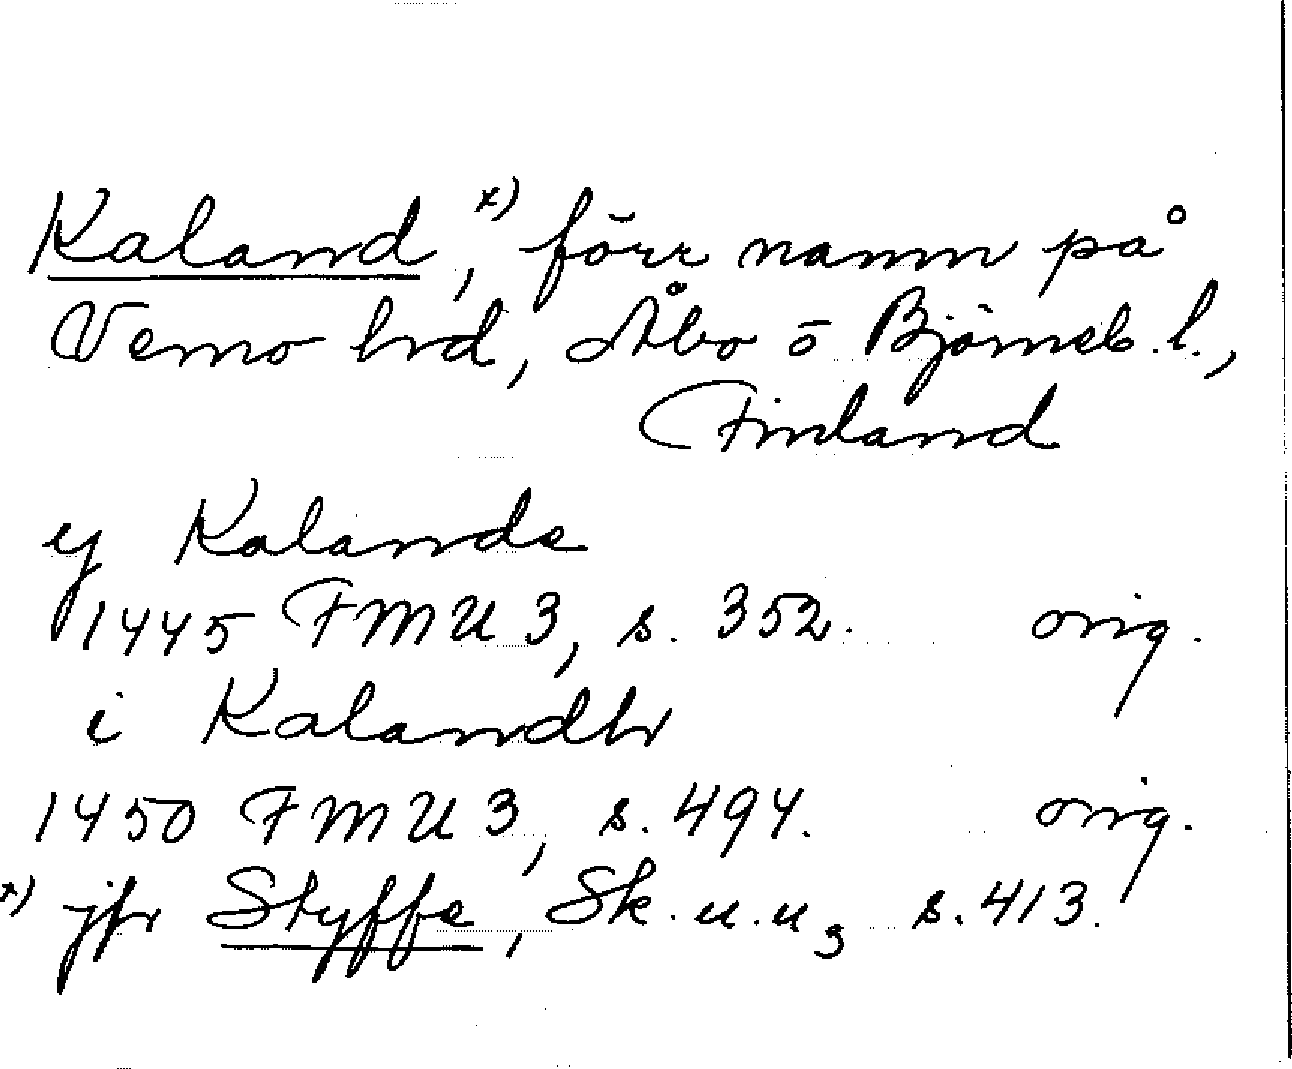 Kaland,ˣ⁾ förr namn på
Vemo hrd, Åbo o Björneb. l.,
Finland
ij Kalande
1445 FMU 3, s. 352. orig.
i Kalandh
1450 FMU 3, s. 494. orig.
x) jfr Styffe, Sk. u. u₃ s. 413.